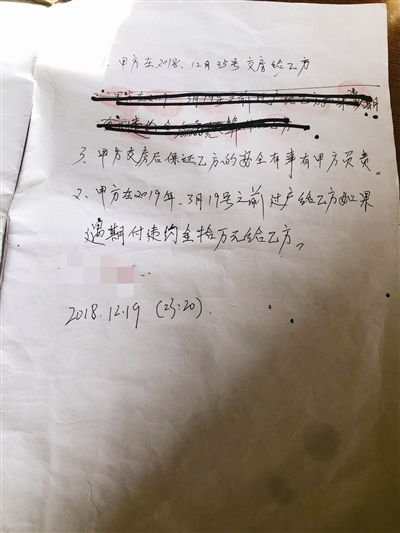 1. 甲方在2018.12月25号交房给乙方
3月19号之前过户给乙方
3、甲方交房后保证乙方的安全有事有甲方负责。
2、甲方在2019年、3月19号之前过户给乙方如果
逾期付违约金拾万元给乙方。
2018.12.19 (23:20).